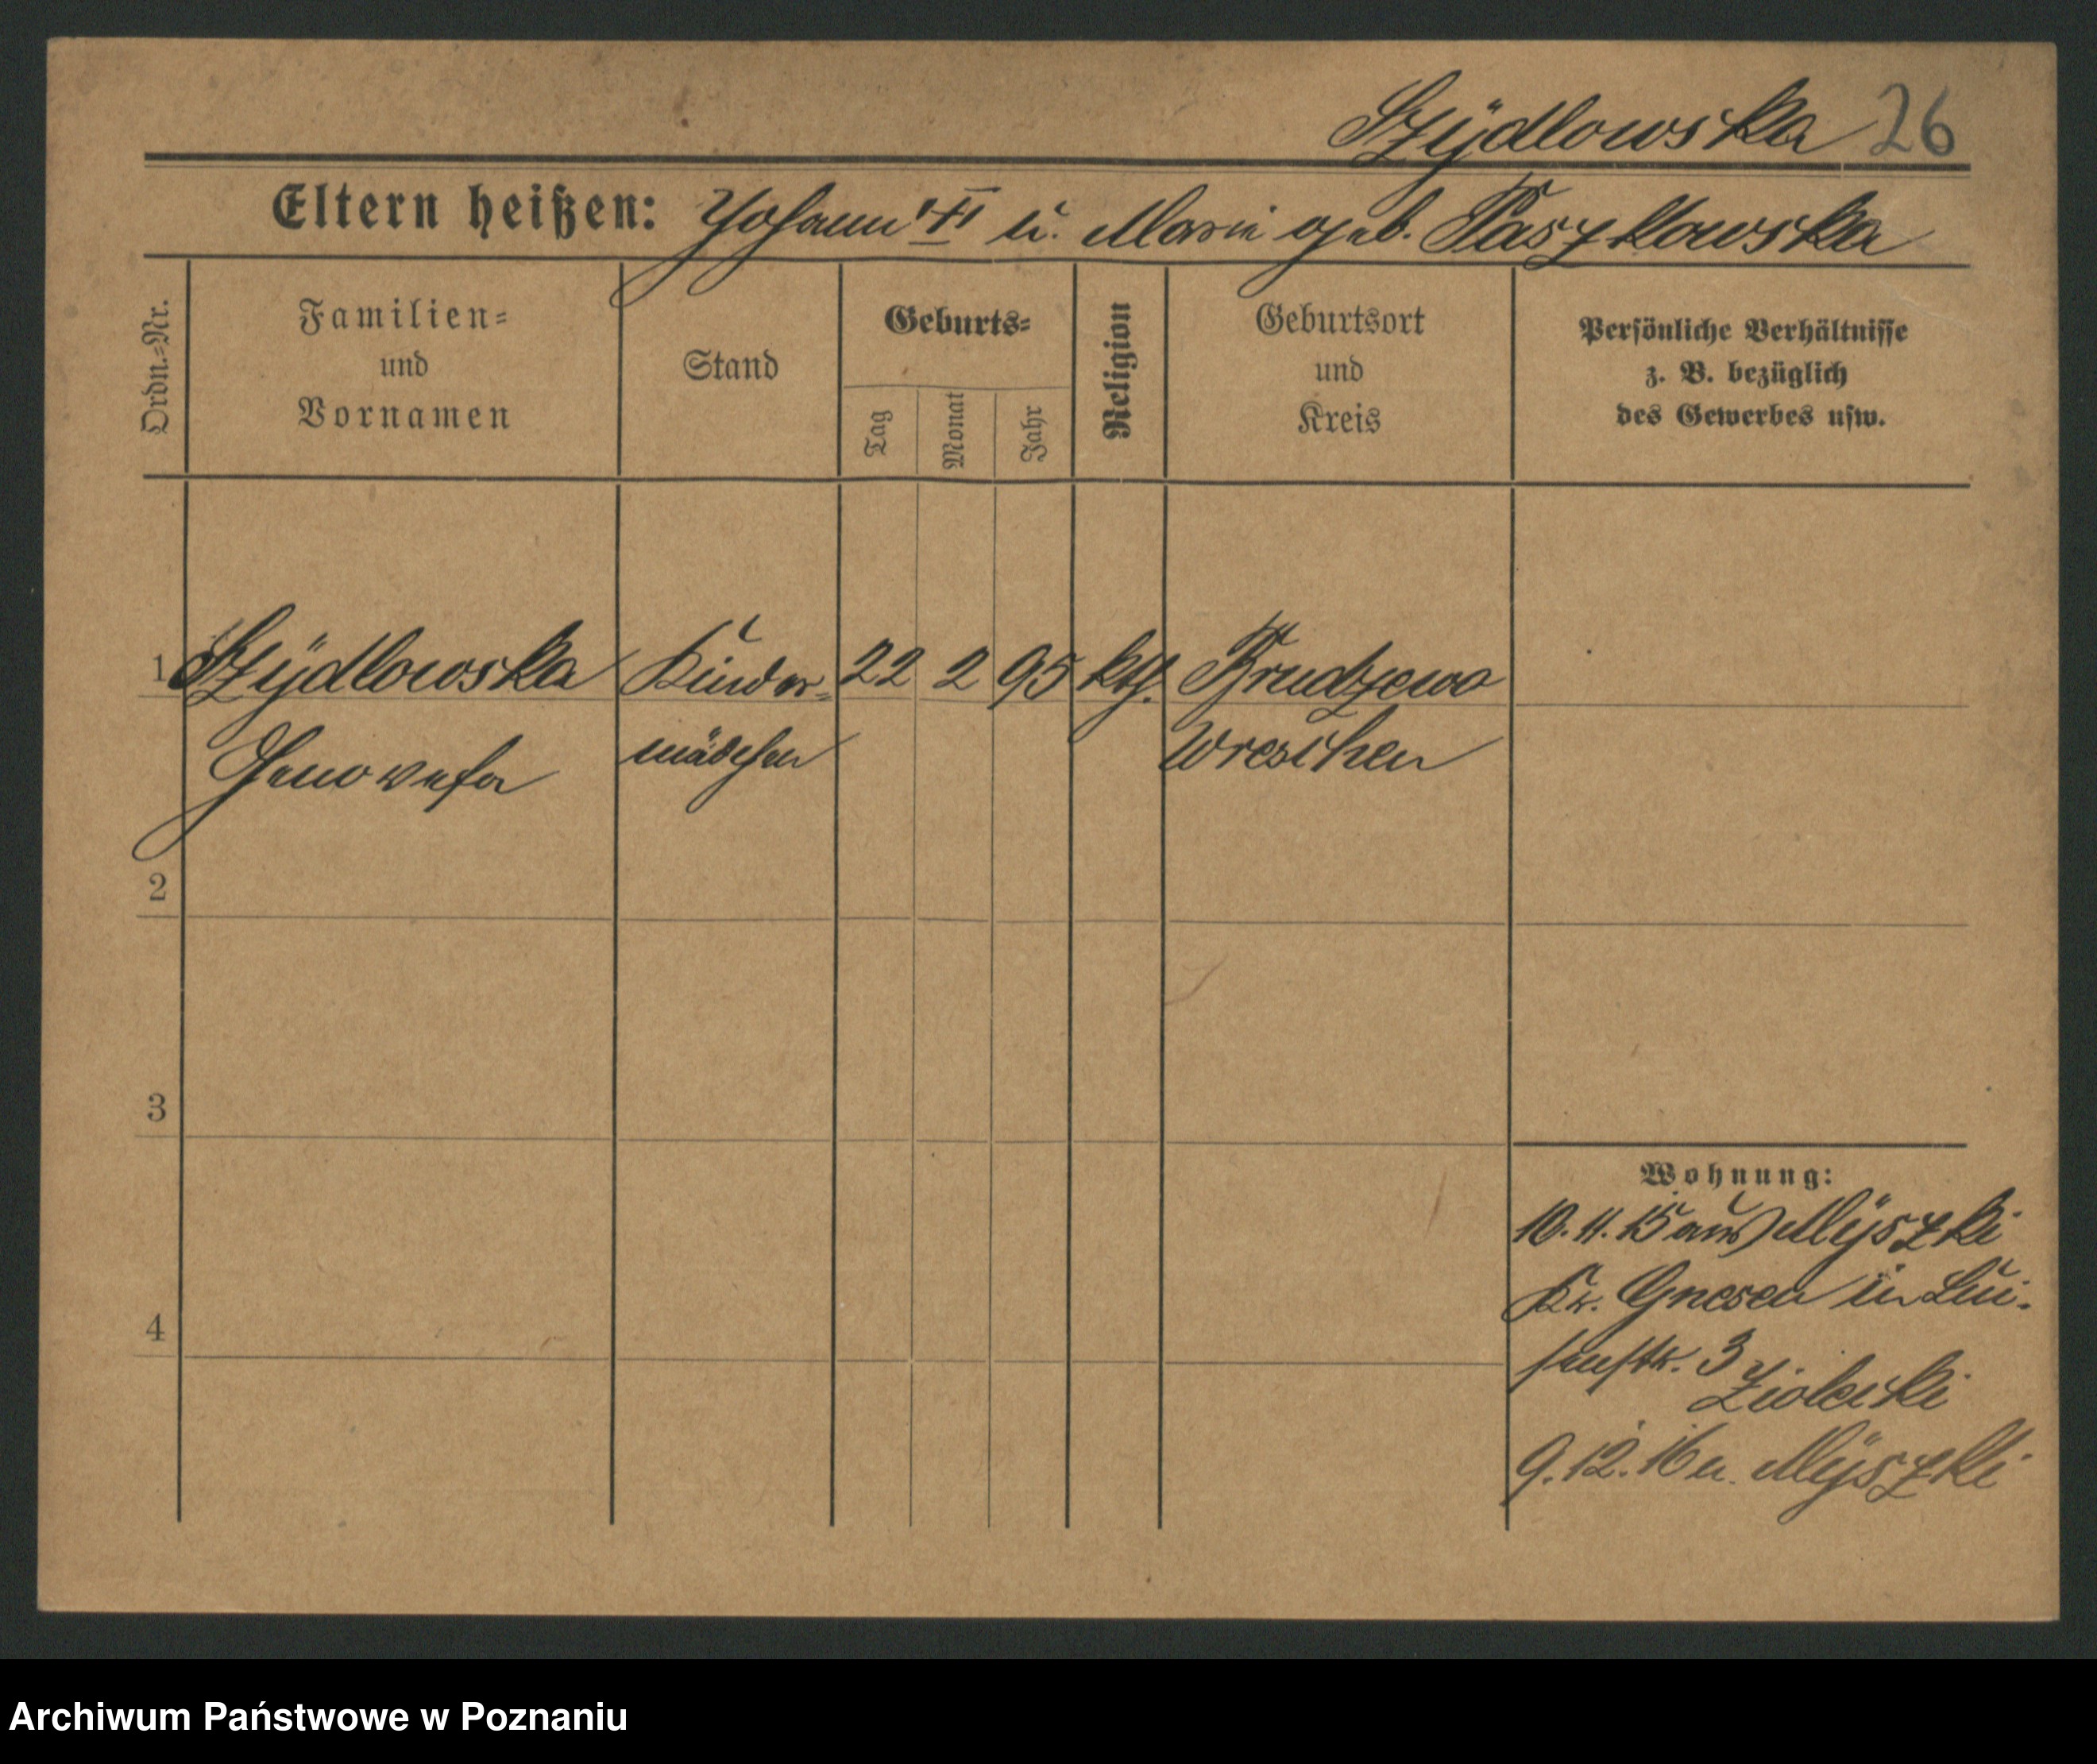 Szÿdlowska 26
Eltern heißen: Johann "†" u. Marie geb. Paszkowska
Ordn.=Nr.
Familien=
und
Vornamen
Stand
Geburts=
Tag
Monat
Jahr
Religion
Geburtsort
und
Kreis
Persönliche Verhältnisse
z. B. bezüglich
des Gewerbes usw.
1 Szÿdlowska Kinder= 22 2 95 kth. Brudzewo
Genowefa mädchen Wreschen
2
3
4
Wohnung:
10.11.15 aus Mÿszki
Kr. Gnesen in Lui-
senstr. 3
9.12.16 n. Mÿszki
Archiwum Państwowe w Poznaniu